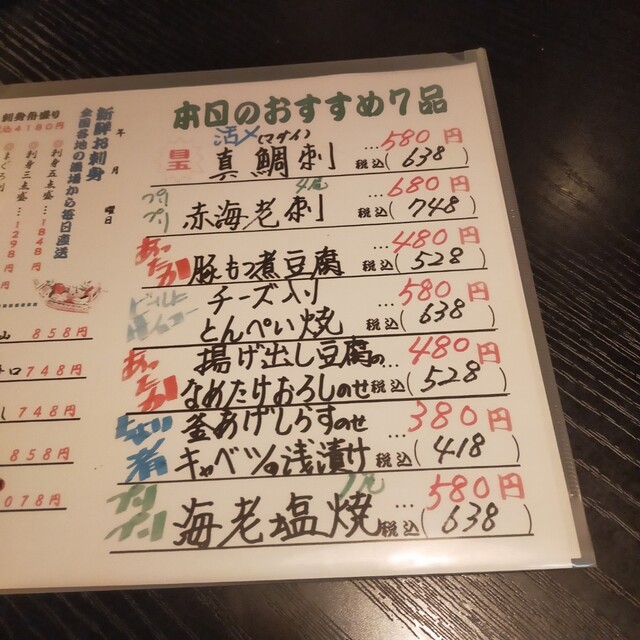 本日のおすすめ7品
活〆(マダイ)
目玉
真鯛刺 …580円
税込(638)
プリプリ
4尾
赤海老刺 …680円
税込(748)
あったか
豚もつ煮豆腐 …480円
税込(528)
チーズ入り …580円
とんぺい焼 税込(638)
あったか
揚げ出し豆腐の …480円
なめたけおろしのせ 税込(528)
ちょい
釜あげしらすのせ …380円
者 キャベツの浅漬け 税込(418)
プリプリ
海老塩焼 …580円
税込(638)
年 月 曜日
新鮮お刺身
全国各地の漁場から毎日直送
刺身五点盛…1848円
刺身三点盛…1298円
4180円
858円
748円
748円
858円
078円